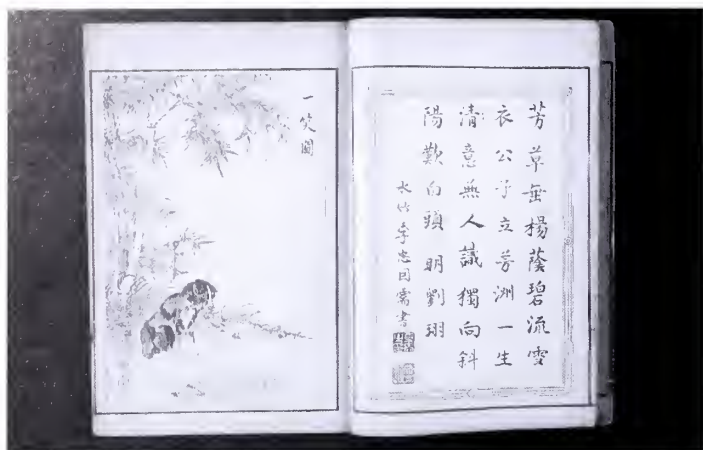 芳草垂楊蔭碧流雪
衣公子立芳洲一生
清意無人識獨向斜
陽歎白頭明劉珝
一笑圖